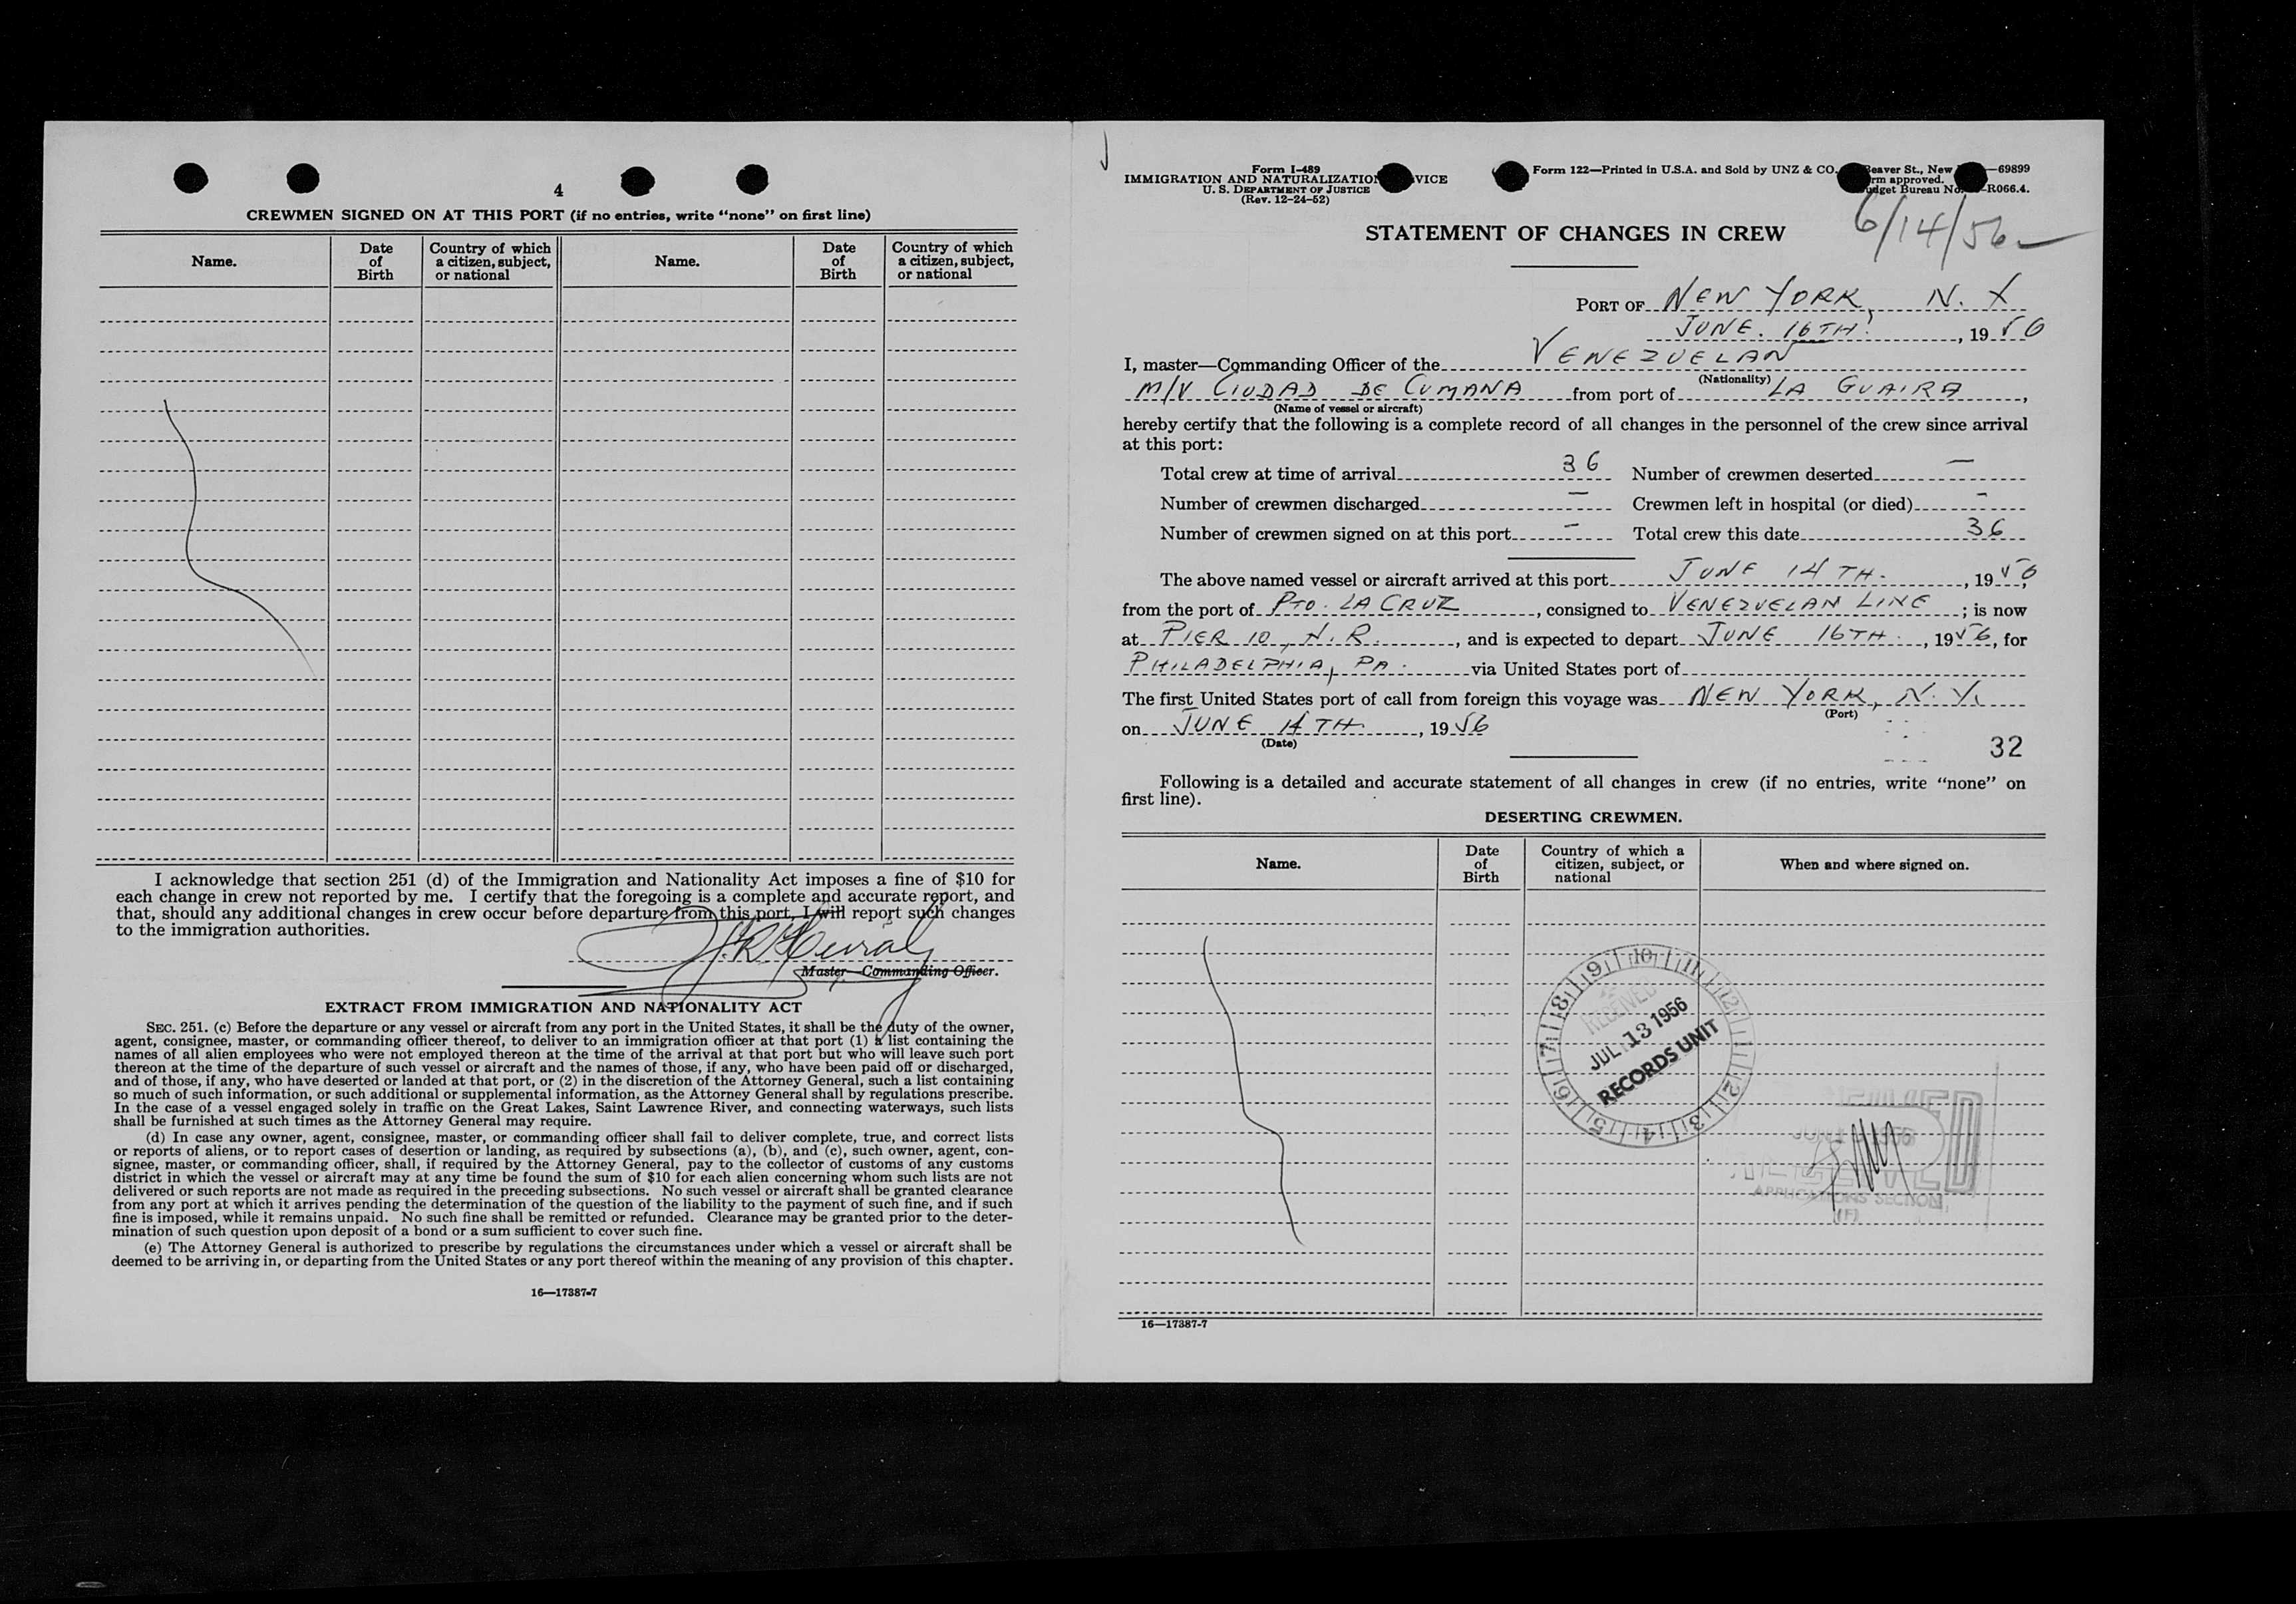 4
CREWMEN SIGNED ON AT THIS PORT (if no entries, write “none” on first line)
Name.
Date
of
Birth
Country of which
a citizen, subject,
or national
Name.
Date
of
Birth
Country of which
a citizen, subject,
or national
I acknowledge that section 251 (d) of the Immigration and Nationality Act imposes a fine of $10 for
each change in crew not reported by me. I certify that the foregoing is a complete and accurate report, and
that, should any additional changes in crew occur before departure from this port, I will report such changes
to the immigration authorities.
Master—Commanding Officer.
EXTRACT FROM IMMIGRATION AND NATIONALITY ACT
SEC. 251. (c) Before the departure or any vessel or aircraft from any port in the United States, it shall be the duty of the owner,
agent, consignee, master, or commanding officer thereof, to deliver to an immigration officer at that port (1) a list containing the
names of all alien employees who were not employed thereon at the time of the arrival at that port but who will leave such port
thereon at the time of the departure of such vessel or aircraft and the names of those, if any, who have been paid off or discharged,
and of those, if any, who have deserted or landed at that port, or (2) in the discretion of the Attorney General, such a list containing
so much of such information, or such additional or supplemental information, as the Attorney General shall by regulations prescribe.
In the case of a vessel engaged solely in traffic on the Great Lakes, Saint Lawrence River, and connecting waterways, such lists
shall be furnished at such times as the Attorney General may require.
(d) In case any owner, agent, consignee, master, or commanding officer shall fail to deliver complete, true, and correct lists
or reports of aliens, or to report cases of desertion or landing, as required by subsections (a), (b), and (c), such owner, agent, con-
signee, master, or commanding officer, shall, if required by the Attorney General, pay to the collector of customs of any customs
district in which the vessel or aircraft may at any time be found the sum of $10 for each alien concerning whom such lists are not
delivered or such reports are not made as required in the preceding subsections. No such vessel or aircraft shall be granted clearance
from any port at which it arrives pending the determination of the question of the liability to the payment of such fine, and if such
fine is imposed, while it remains unpaid. No such fine shall be remitted or refunded. Clearance may be granted prior to the deter-
mination of such question upon deposit of a bond or a sum sufficient to cover such fine.
(e) The Attorney General is authorized to prescribe by regulations the circumstances under which a vessel or aircraft shall be
deemed to be arriving in, or departing from the United States or any port thereof within the meaning of any provision of this chapter.
16—17387-7
Form I-489
IMMIGRATION AND NATURALIZATION VICE
U. S. DEPARTMENT OF JUSTICE
(Rev. 12-24-52)
Form 122—Printed in U.S.A. and Sold by UNZ & CO. Beaver St., New —69899
rm approved.
udget Bureau No. -R066.4.
6/14/56
STATEMENT OF CHANGES IN CREW
PORT OF NEW YORK, N. Y
JUNE. 16TH, 19 56
I, master—Commanding Officer of the VENEZUELAN
(Nationality)
M/V CIUDAD DE CUMANA from port of LA GUAIRA,
(Name of vessel or aircraft)
hereby certify that the following is a complete record of all changes in the personnel of the crew since arrival
at this port:
Total crew at time of arrival 36 Number of crewmen deserted —
Number of crewmen discharged — Crewmen left in hospital (or died) -
Number of crewmen signed on at this port - Total crew this date 36
The above named vessel or aircraft arrived at this port JUNE 14TH., 19 56,
from the port of PTO. LA CRUZ, consigned to VENEZUELAN LINE; is now
at PIER 10, N. R., and is expected to depart JUNE 16TH., 19 56, for
PHILADELPHIA, PA. via United States port of
The first United States port of call from foreign this voyage was NEW YORK, N. Y.
(Port)
on JUNE 14TH., 19 56
(Date)
32
Following is a detailed and accurate statement of all changes in crew (if no entries, write “none” on
first line).
DESERTING CREWMEN.
Name.
Date
of
Birth
Country of which a
citizen, subject, or
national
When and where signed on.
10 11 12 1 2 3 4 5 6 7 8 9
RECEIVED
JUL 13 1956
RECORDS UNIT
APPLICATIONS SECTION
(F)
16—17387-7